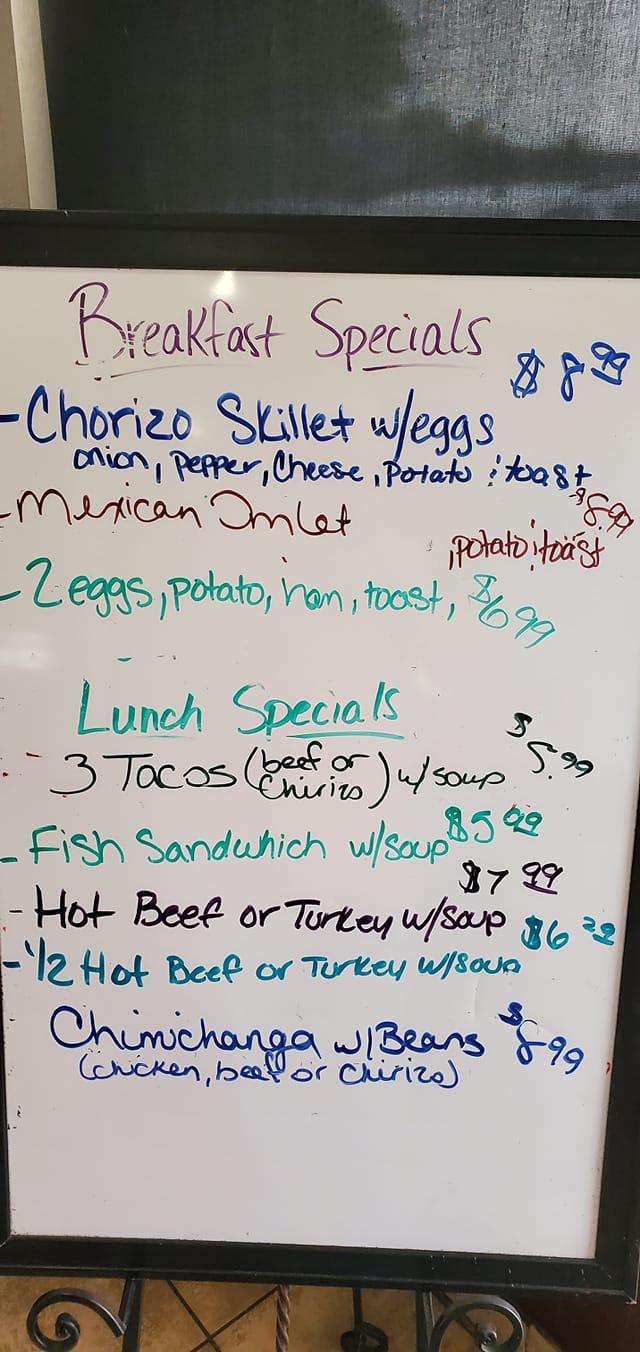 Breakfast Specials
$8.99
- Chorizo Skillet w/eggs
onion, pepper, cheese, potato & toast
- Mexican Omlet $8.99
, potato & toast
- 2 eggs, potato, ham, toast, $6.99
Lunch Specials
3 Tacos (beef or Chirizo) w/ soup $5.99
- Fish Sandwhich w/soup $5.99
- Hot Beef or Turkey w/soup $7.99
- 1/2 Hot Beef or Turkey w/soup $6
Chimichanga w/Beans $8.99
(chicken, beef or Chirizo)